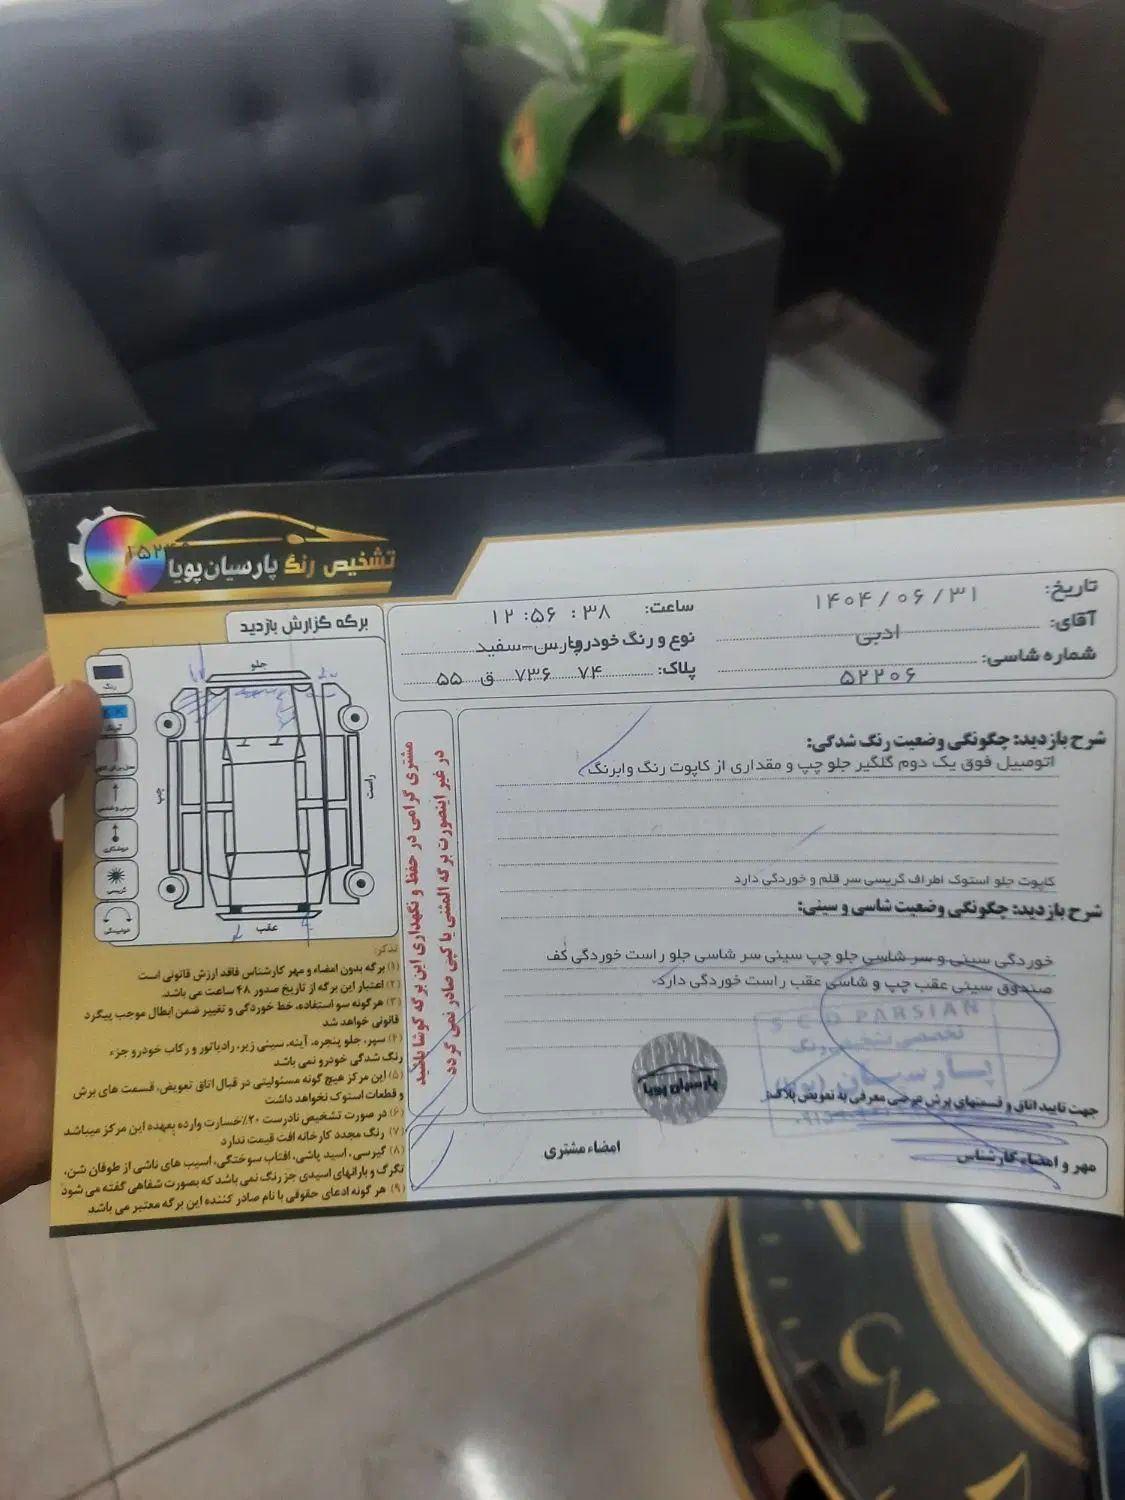 تشخیص رنگ پارسیان پویا
برگه گزارش بازدید
تاریخ: ۱۴۰۴/۰۶/۳۱
ساعت: ۱۲:۵۶:۳۸
آقای: ادبی
نوع و رنگ خودرو: پارس-سفید
شماره شاسی: ۵۲۲۰۶
پلاک: ۷۴ ۷۳۶ ق ۵۵
شرح بازدید: چگونگی وضعیت رنگ شدگی:
اتومبیل فوق یک دوم گلگیر جلو چپ و مقداری از کاپوت رنگ وابرنگ
کاپوت جلو استوک اطراف گریسی سر قلم و خوردگی دارد
شرح بازدید: چگونگی وضعیت شاسی و سینی:
خوردگی سینی و سر شاسی جلو چپ سینی سر شاسی جلو راست خوردگی کف
صندوق سینی عقب چپ و شاسی عقب راست خوردگی دارد.
PARSIAN
تخصصی تشخیص رنگ
پارسیان پویا
جهت تایید اتاق و قسمتهای برش عرضی معرفی به تعویض پلاک
مهر و امضاء کارشناس
امضاء مشتری
مشتری گرامی در حفظ و نگهداری این برگه کوشا باشید
در غیر اینصورت برگه المثنی یا کپی صادر نمی گردد
جلو
چپ
راست
عقب
رنگ
خوردگی
تذکر:
۱) برگه بدون امضاء و مهر کارشناس فاقد ارزش قانونی است
۲) اعتبار این برگه از تاریخ صدور ۴۸ ساعت می باشد.
۳) هرگونه سو استفاده، خط خوردگی و تغییر ضمن ابطال موجب پیگرد
قانونی خواهد شد
۴) سپر، جلو پنجره، آینه، سینی زیر، رادیاتور و رکاب خودرو جزء
رنگ شدگی خودرو نمی باشد
۵) این مرکز هیچ گونه مسئولیتی در قبال اتاق تعویض، قسمت های برش
و قطعات استوک نخواهد داشت
۶) در صورت تشخیص نادرست ۲۰٪ خسارت وارده بعهده این مرکز میباشد
۷) رنگ مجدد کارخانه افت قیمت ندارد
۸) گیرسی، اسید پاشی، افتاب سوختگی، اسیب های ناشی از طوفان شن،
تگرگ و بارانهای اسیدی جز رنگ نمی باشد که بصورت شفاهی گفته می شود
۹) هر گونه ادعای حقوقی با نام صادر کننده این برگه معتبر می باشد